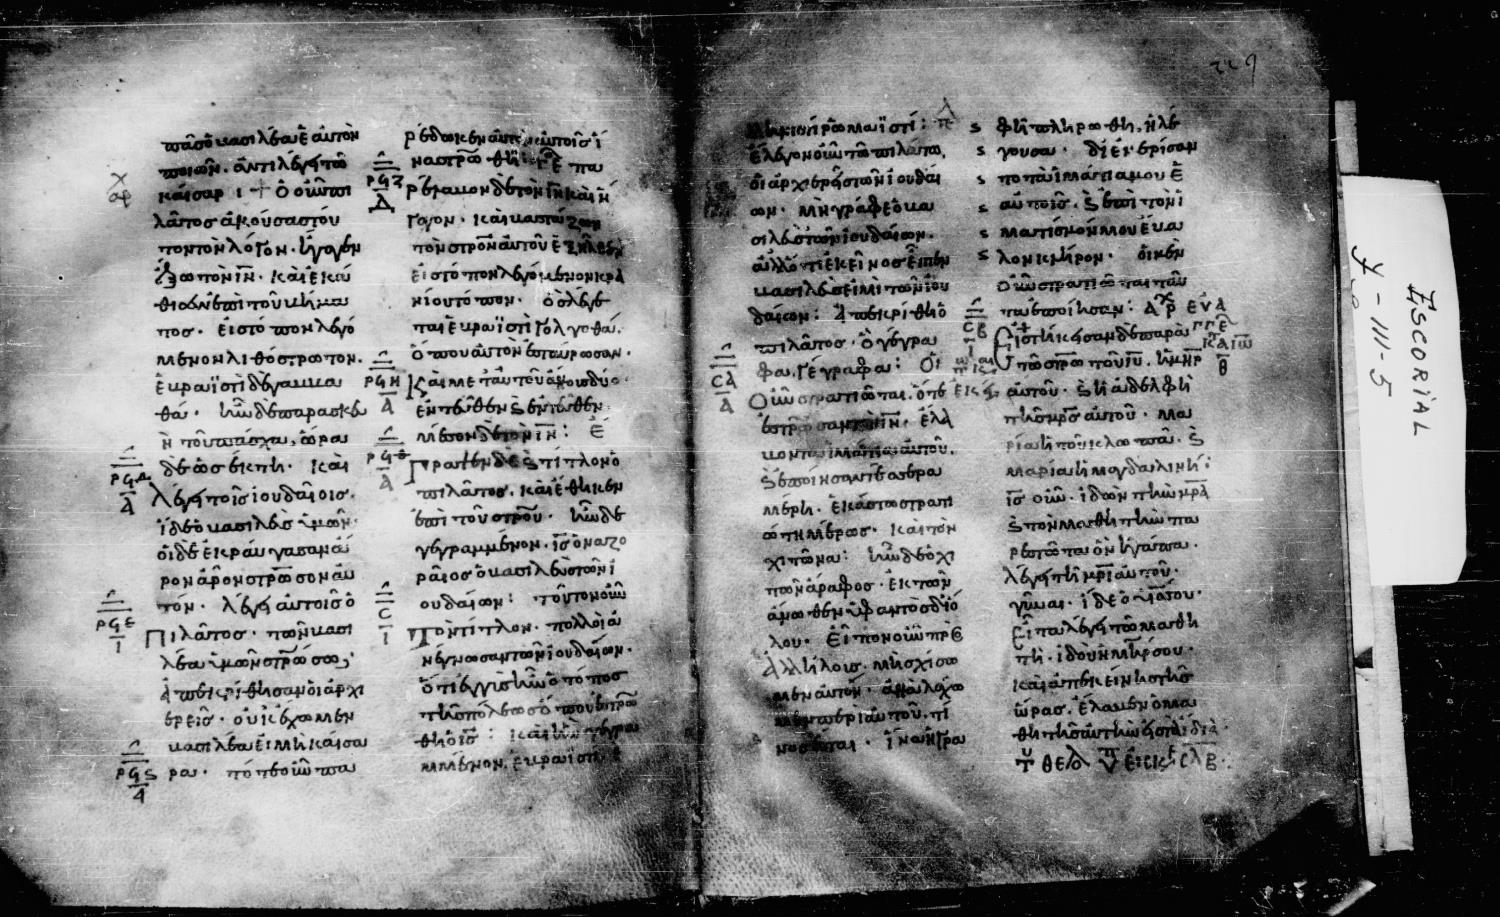 πᾶσ ὁ βασιλέα ἑαυτὸν
ποιῶν. ἀντιλέγει τῶ
καίσαρι + ὁ οὖν πι
λᾶτος ἀκούσας τοῦ
τον τὸν λόγον. ἤγαγεν
ἔξω τὸν ἰν. καὶ ἐκά
θισεν ἐπὶ τοῦ βήμα
τος. εἰς τόπον λεγό
μενον λιθόστρωτον.
ἑβραϊστὶ δὲ γαββα
θά. ἦν δὲ παρασκευ
ὴ τοῦ πάσχα, ὥρα
δὲ ὡς ἕκτη. καὶ
λέγει τοῖς ἰουδαίοις.
ἴδε ὁ βασιλεὺς ὑμῶν.
οἱ δὲ ἐκραύγασαν ἆ
ρον ἆρον στρωσον αὐ
τόν. λέγει αὐτοῖς ὁ
Πιλᾶτος. τὸν βασι
λέα ὑμῶν στρώσω;
ἀπεκρίθησαν οἱ ἀρχι
ερεῖς. οὐκ ἔχομεν
βασιλέα εἰ μὴ καίσα
ρα. τότε οὖν πα
ρέδωκεν αὐτὸν αὐτοῖς ἵ
να στρωθῆ:
ρέλαβον δὲ τὸν ἰν καὶ ἤ
γαγον. καὶ βαστάζων
τὸν στρον αὐτοῦ ἐξῆλθεν
εἰς τόπον λεγόμενον κρα
νίου τόπον. ὃ λέγε
ται ἑβραϊστὶ γολγοθά.
ὅπου αὐτὸν ἐσταύρωσαν.
Καὶ μετ αὐτοῦ ἄλλους δύο
ἐντεῦθεν καὶ ἐντεῦθεν
μέσον δὲ τὸν ἰν: Ἔ
Γραψεν δὲ καὶ τίτλον ὁ
πιλᾶτος. καὶ ἔθηκεν
ἐπὶ τοῦ στρου. ἦν δὲ
γεγραμμένον. ις ὁ ναζω
ραῖος ὁ βασιλεὺς τῶν ἰ
ουδαίων: τοῦτον οὖν
Τὸν τίτλον. πολλοὶ ἀ
νέγνωσαν τῶν ἰουδαίων.
ὅτι ἐγγὺς ἦν ὁ τόπος
τῆς πόλεως ὅπου ἐστρώ
θη ὁ ις: καὶ ἦν γεγρα
μμένον. ἑβραϊστὶ.
ῥωμαϊστί:
ἔλεγον οὖν τῶ πιλάτω,
οἱ ἀρχιερεῖς τῶν ἰουδαί
ων. μὴ γράφε ὁ βα
σιλεὺς τῶν ἰουδαίων.
ἀλλ ὅτι ἐκεῖνος εἶπεν
βασιλεύς εἰμι τῶν ἰου
δαίων: ἀπεκρίθη ὁ
πιλᾶτος. ὃ γέγρα
φα. γέγραφα: Οἱ
Οὖν στρατιῶται. ὅτε
ἐστρωσαν τὸν ἰν. ἔλα
βον τὰ ἱμάτια αὐτοῦ.
καὶ ἐποίησαν τέσσερα
μέρη. ἑκάστω στρατι
ώτη μέρος. καὶ τὸν
χιτῶνα: ἦν δὲ ὁ χι
τὼν ἄραφος. ἐκ τῶν
ἄνωθεν ὑφαντὸς δι ὅ
λου. εἶπον οὖν πρὸς
ἀλλήλους. μὴ σχίσω
μεν αὐτόν. ἀλλὰ λάχω
μεν περὶ αὐτοῦ. τί
νος ἔσται. ἵνα ἡ γρα
φὴ πληρωθῆ. ἡ λέ
γουσα. διεμερίσαν
το τὰ ἱμάτιά μου ἑ
αυτοῖς. καὶ ἐπὶ τὸν ἱ
ματισμόν μου ἔβα
λον κλῆρον. οἱ μὲν
οὖν στρατιῶται ταῦ
τα ἐποίησαν:
Εἱστήκεσαν δὲ παρὰ
τῶ στρω τοῦ ιυ. ἡ μηρ
αὐτοῦ. καὶ ἡ ἀδελφὴ
τῆς μρς αὐτοῦ. μα
ρία ἡ τοῦ κλωπᾶ. καὶ
μαρία ἡ μαγδαληνή:
ις οὖν. ἰδὼν τὴν μρα
καὶ τὸν μαθητὴν πα
ρεστῶτα ὃν ἠγάπα.
λέγει τῆ μρι αὐτοῦ.
γύναι. ἴδε ὁ υἱός σου.
Εἶτα λέγει τῶ μαθη
τῆ. ἰδοὺ ἡ μήτηρ σου.
καὶ ἀπ ἐκείνης τῆς
ὥρας. ἔλαβεν ὁ μα
θητὴς αὐτὴν εἰς τὰ ἴδια.
ESCORIAL
Y-III-5